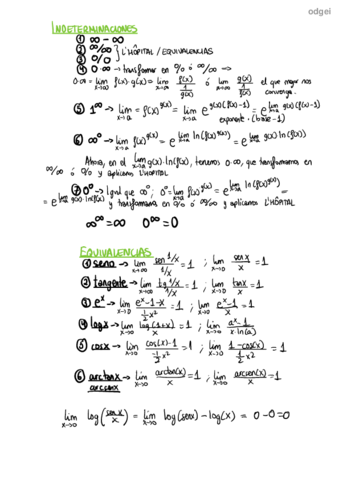 odgei
INDETERMINACIONES
① ∞ − ∞
② ∞/∞ } L'HÔPITAL / EQUIVALENCIAS
③ 0/0
④ 0·∞ → transformar en 0/0 ó ∞/∞ →
lim x→a f(x)·g(x) = lim x→a f(x)/(1/g(x)) ó lim x→a g(x)/(1/f(x)) el que mejor nos convenga.
⑤ 1^∞ → lim x→a = f(x)^g(x) = e^(lim x→a g(x)(f(x)−1)) = e^(lim x→a g(x)(f(x)−1))
exponente · (base − 1)
⑥ ∞^0 → lim x→a f(x)^g(x) = e^(lim x→a ln(f(x)^g(x))) = e^(lim x→a g(x) ln(f(x)))
Ahora, en el lim x→a g(x)·ln(f(x)), tenemos 0·∞, que transformamos en
∞/∞ ó 0/0 y aplicamos L'HÔPITAL
⑦ 0^0 → Igual que ∞^0; 0^0 = lim x→a f(x)^g(x) = e^(lim x→a ln(f(x)^g(x))) =
= e^(lim x→a g(x)·ln(f(x))) y transformamos en 0/0 ó ∞/∞ y aplicamos L'HÔPITAL
∞^∞ = ∞ 0^∞ = 0
EQUIVALENCIAS
① seno → lim x→∞ sen 1/x / 1/x = 1 ; lim x→0 sen x / x = 1
② tangente → lim x→∞ tg 1/x / 1/x = 1 ; lim x→0 tan x / x = 1
③ e^x → lim x→0 e^x−1−x / ½x² = 1 ; lim x→0 e^x−1 / x = 1
④ log x → lim x→0 log(1+x) / x = 1 ; lim x→0 a^x−1 / x·ln(a) = 1
⑤ cos x → lim x→0 cos(x)−1 / −½x² = 1 ; lim x→0 1−cos(x) / ½x² = 1
⑥ arctan x → lim x→0 arctan(x) / x = 1 ; lim x→0 arcsen(x) / x = 1
arcsen x
lim x→0 log(sen x / x) = lim x→0 log(sen x) − log(x) = 0−0=0